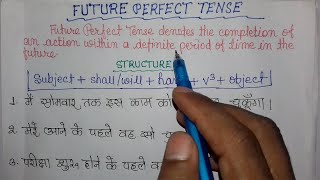 FUTURE PERFECT TENSE
Future Perfect Tense denotes the completion of
an action within a definite period of time in
the future.
STRUCTURE
Subject + shall/will + have + v³ + object
1. मैं सोमवार तक इस काम को चुकूँगा।
2. मेरे आने के पहले वह सो
3. परीक्षा शुरू होने के पहले वह